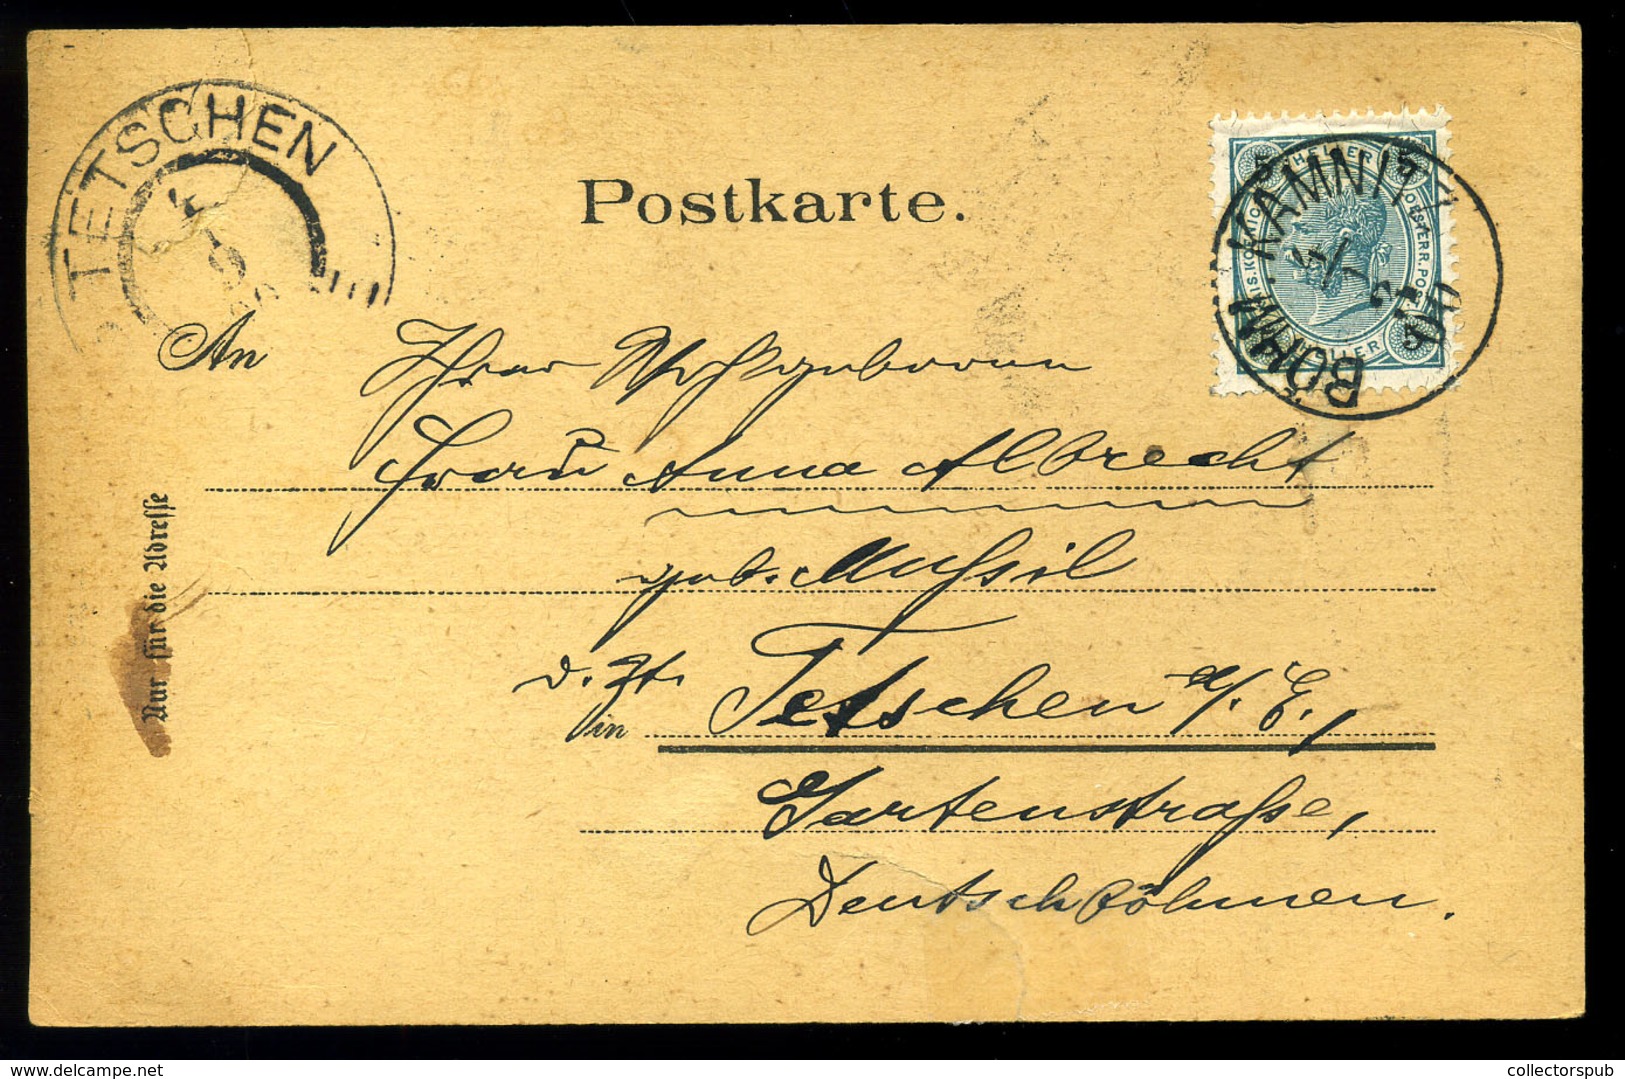 TETSCHEN
Postkarte.
5 HELLER 5
KAIS. KÖNIGL. OESTERR. POST
5 HELLER 5
BÖHM. KAMNITZ
An
Ihrer Wohlgeboren
Frau Anna Albrecht
geb. Mussil
d. Zt.
in Tetschen a/E.,
Gartenstraße,
Deutschböhmen.
Nur für die Adresse
collectorspub